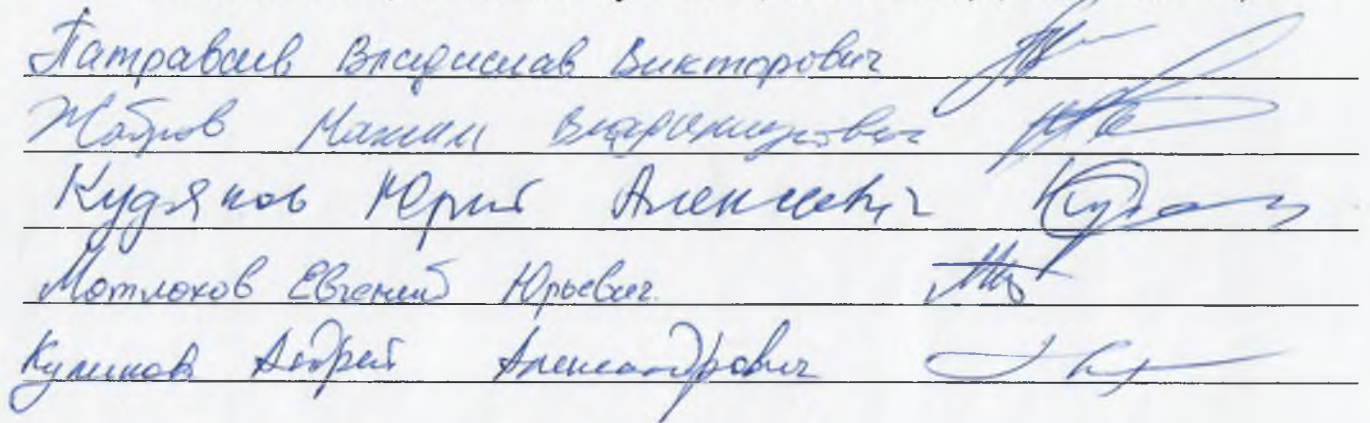 Патраваев Владислав Викторович
Жабров Максим Владимирович
Кудяков Юрий Алексеевич
Мотлохов Евгений Юрьевич
Куликов Андрей Александрович